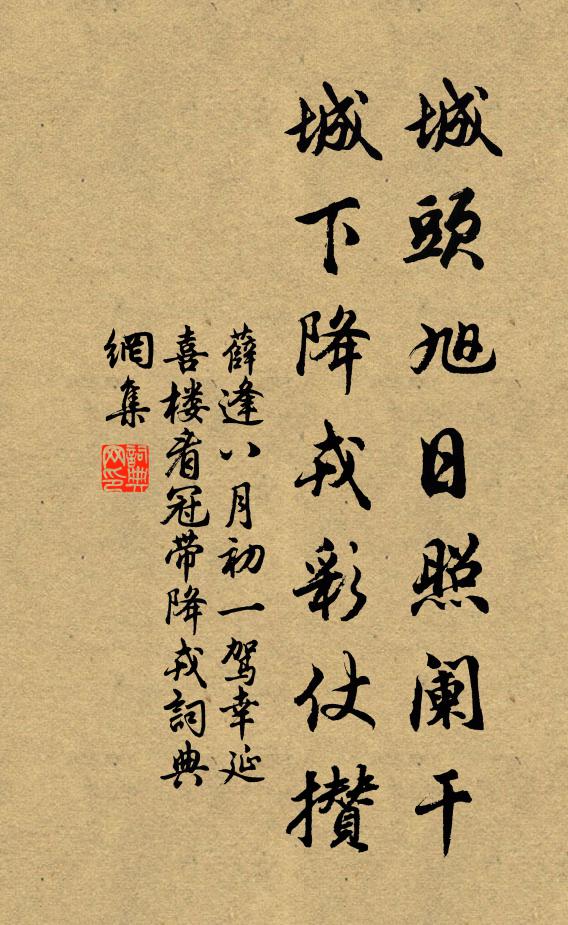 城頭旭日照阑干
城下降戎彩仗攅
薛逢八月初一驾幸延
喜楼看冠带降戎詞典
網集
詞典网印